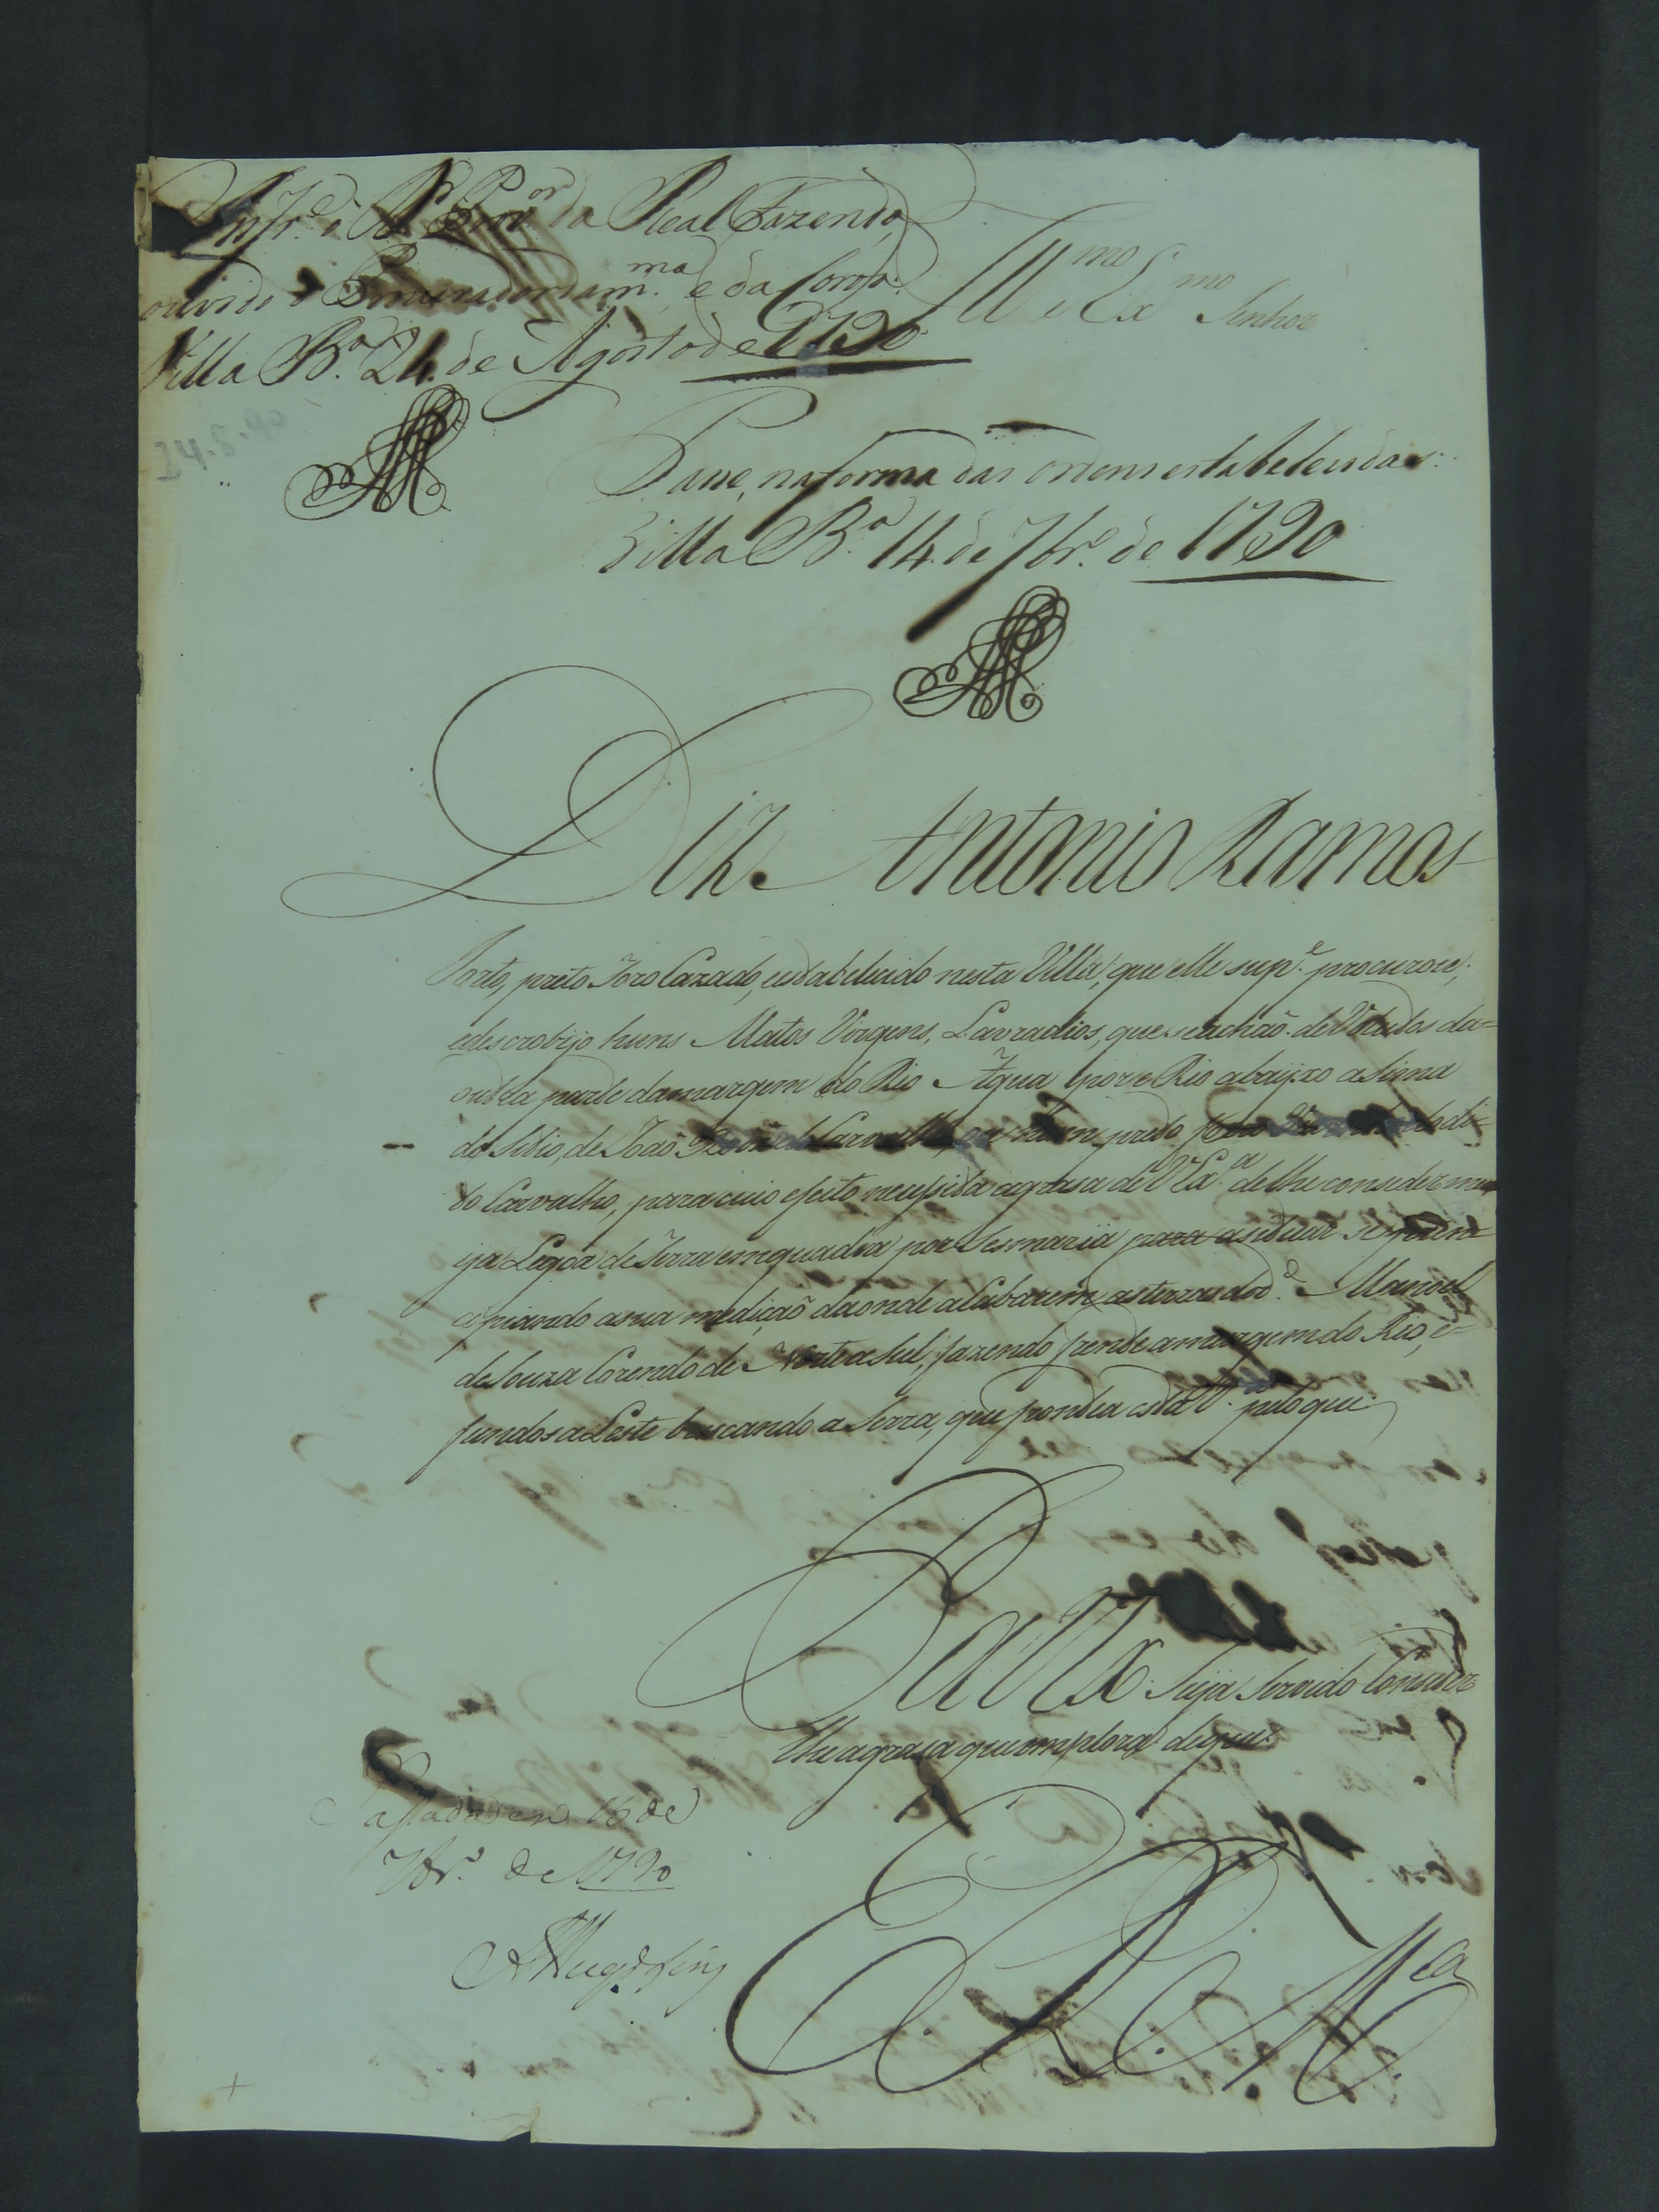 Inf.e o D.r Prov.or da Real Fazenda,
ouvido o Procurador da m.ma e da Coroa.
Villa B.a 24. de Agosto de 1790
Ill.mo e Ex.mo Senhor
24.8.90
Passe, na forma das ordens estabelecidas:
Villa B.a 14 de 7br.o de 1790
Diz Antonio Ramos
Porto, preto Forro Cazado, estabelicido nesta Villa, que elle sup.e procurou,
e descrobijo huns Matos Virgens, Lavradios, que se achão devolutos da
outra parte da margem do Rio Agua por e Rio abaijxo asima
do Sitio, de João de Carvalho, preto
do Carvalho, para cuio efeito necessita a grasa de V Ex.a de lhe conseder me
ya Legoa de Terra em quadra por Sesmaria para a situar se
a piando a sua medição daonde acabarem as terras do d.o Manoel
de Souza Corendo de Norte a Sul, fazendo frente a margem do Rio, e
fundos a Leste buscando a Serra, que frontea esta V.a pelo que
P. a V Ex.a Seja Servido Conseder
lhe a grasa que emplora: de que
Passado em 16 de
7br.o de 1790
E. R. M.ca